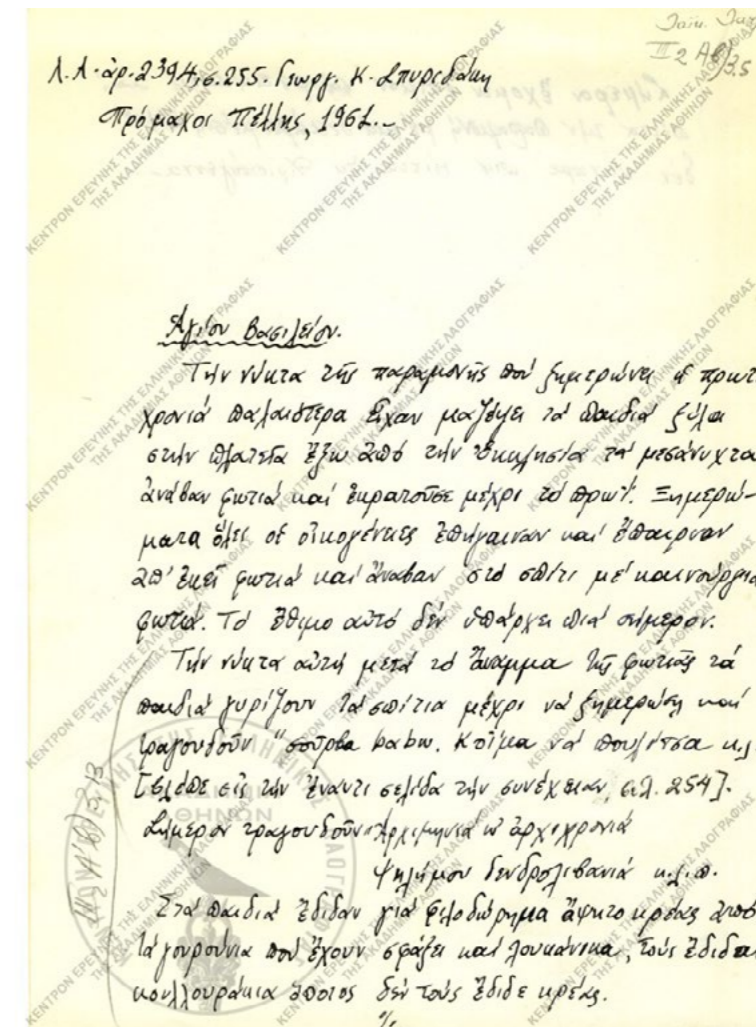 Λ.Α. ἀρ. 2394, σ. 255. Γεωργ. Κ. Σπυριδάκη
Πρόμαχοι Πέλλης, 1961.-
ΙΙΙ 2 Α
Ἁγίου Βασιλείου.
Τὴν νύκτα τῆς παραμονῆς ποὺ ξημερώνει ἡ πρωτ
χρονιὰ παλαιότερα εἶχαν μαζέψει τὰ παιδιὰ ξύλα
στὴν πλατεῖα ἔξω ἀπὸ τὴν ἐκκλησία τὰ μεσάνυχτα
ἀνάβαν φωτιὰ καὶ ἐκρατοῦσε μέχρι τὸ πρωΐ. Ξημερώ-
ματα ὅλες οἱ οἰκογένειες ἐπήγαιναν καὶ ἔπαιρναν
ἀπ' ἐκεῖ φωτιὰ καὶ ἄναβαν στὸ σπίτι μὲ καινούργια
φωτιά. Τὸ ἔθιμο αὐτὸ δὲν ὑπάρχει πιὰ σήμερον.
Τὴν νύκτα αὐτὴ μετὰ τὸ ἄναμμα τῆς φωτιᾶς τὰ
παιδιὰ γυρίζουν τὰ σπίτια μέχρι νὰ ξημερώση καὶ
τραγουδοῦν "σούρβα babw. Κοτίμα νὰ πουλίτσα κ.λ
[βλέπε εἰς τὴν ἔναντι σελίδα τὴν συνέχειαν, σελ. 254].
Σήμερον τραγουδοῦν: Ἀρχιμηνιὰ κι ἀρχιχρονιὰ
ψηλή μου δενδρολιβανιὰ κ.λ.π.
Στὰ παιδιὰ ἔδιδαν γιὰ φιλοδώρημα ἄψητο κρέας ἀπὸ
τὰ γουρούνια ποὺ ἔχουν σφάξει καὶ λουκάνικα, τοὺς ἔδιδαν
κουλλουράκια ὅποιος δὲν τοὺς ἔδιδε κρέας.
./.
ΚΕΝΤΡΟΝ ΕΡΕΥΝΗΣ ΤΗΣ ΕΛΛΗΝΙΚΗΣ ΛΑΟΓΡΑΦΙΑΣ
ΤΗΣ ΑΚΑΔΗΜΙΑΣ ΑΘΗΝΩΝ